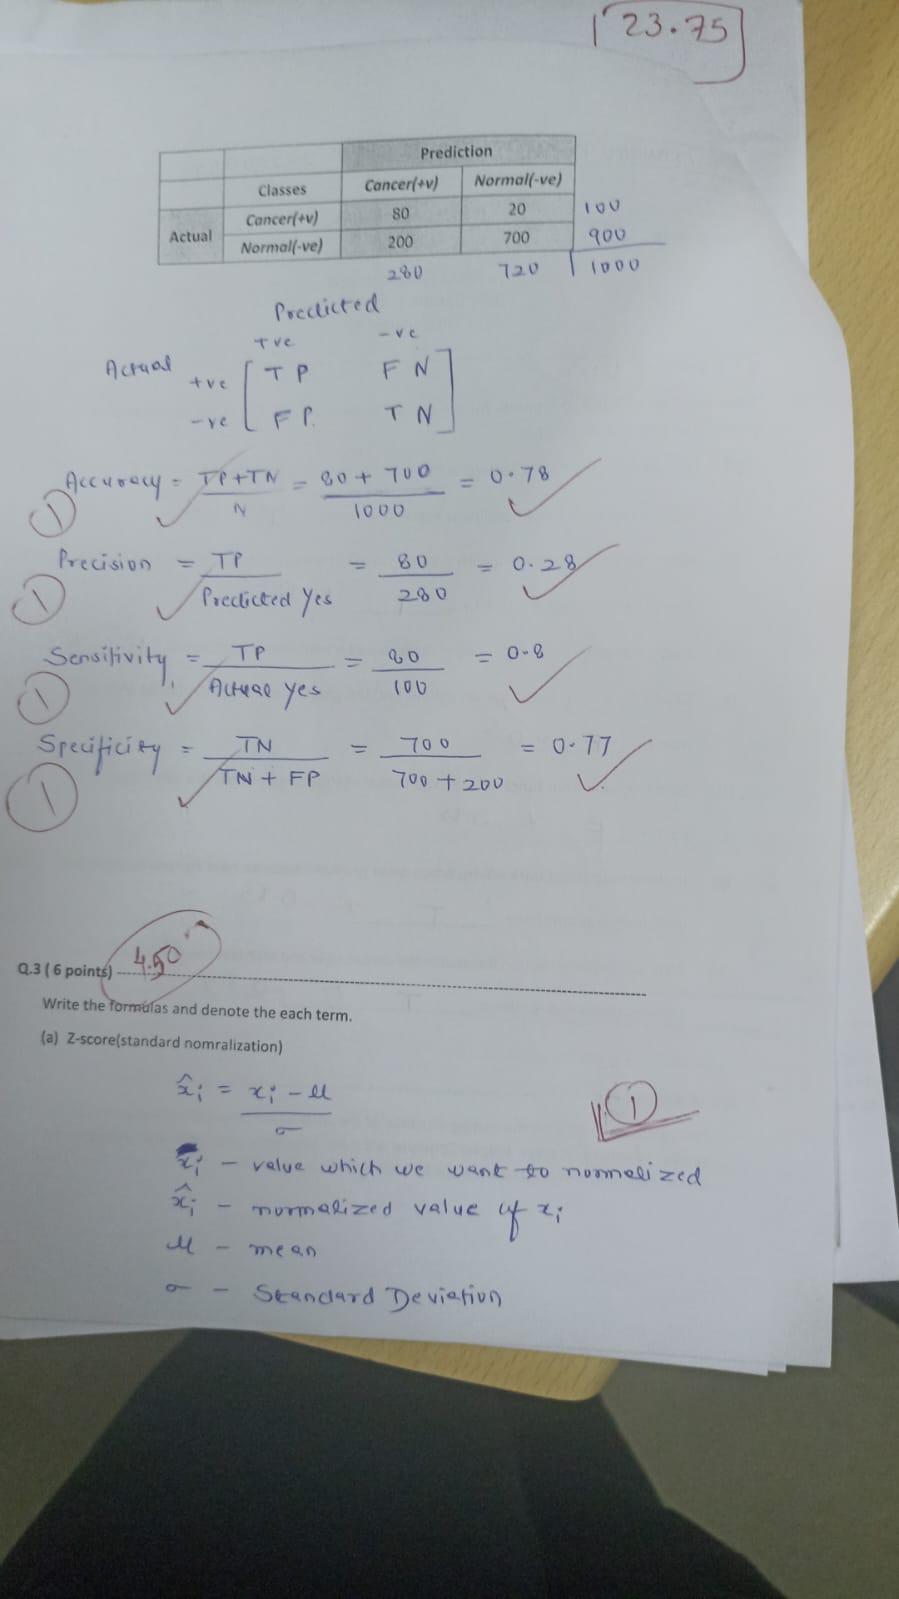 23.75
Prediction
Classes Cancer(+v) Normal(-ve)
Actual Cancer(+v) 80 20 100
Normal(-ve) 200 700 900
280 720 1000
Predicted
+ve -ve
Actual +ve TP FN
-ve FP. TN
Accuracy = TP+TN / N = 80 + 700 / 1000 = 0.78
1
Precision = TP / Predicted Yes = 80 / 280 = 0.28
1
Sensitivity = TP / Actual yes = 80 / 100 = 0.8
1
Specificity = TN / TN + FP = 700 / 700 + 200 = 0.77
1
4.50
Q.3 ( 6 points)
Write the formulas and denote the each term.
(a) Z-score(standard nomralization)
x̂i = xi - μ / σ
1
xi - value which we want to normalized
x̂i - normalized value of xi
μ - mean
σ - Standard Deviation